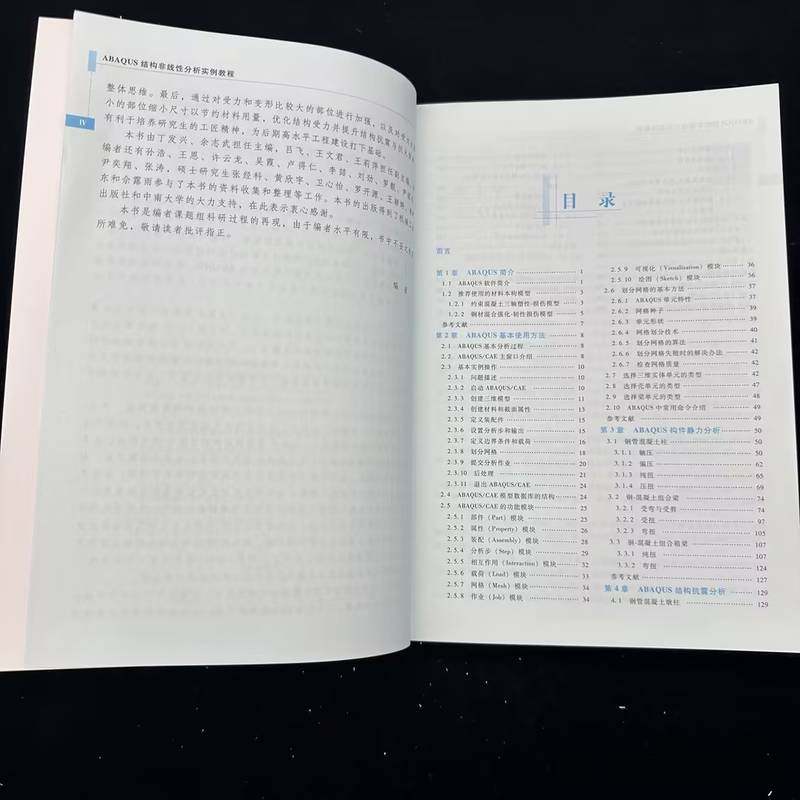 ABAQUS 结构非线性分析实例教程
整体思维。最后，通过对受力和变形比较大的部位进行加强，以及对受力
小的部位缩小尺寸以节约材料用量，优化结构受力并提升结构抗震
有利于培养研究生的工匠精神，为后期高水平工程建设打下基础。
IV
本书由丁发兴、余志武担任主编，吕飞、王文君、王莉萍担任副主编
编者还有孙浩、王恩、许云龙、吴霞、卢得仁、李喆、刘劲、罗靓、尹
尹奕翔、张涛，硕士研究生张经科、黄欣宇、卫心怡、罗开源、王
东和佘露雨参与了本书的资料收集和整理等工作。本书的出版得到了机械
出版社和中南大学的大力支持，在此表示衷心感谢。
本书是编者课题组科研过程的再现，由于编者水平有限，书中不妥
所难免，敬请读者批评指正。
编 者
目 录
前言
第 1 章 ABAQUS 简介 1
1.1 ABAQUS 软件简介 1
1.2 推荐使用的材料本构模型 3
1.2.1 约束混凝土三轴塑性-损伤模型 3
1.2.2 钢材混合强化-韧性损伤模型 5
参考文献 7
第 2 章 ABAQUS 基本使用方法 8
2.1 ABAQUS 基本分析过程 8
2.2 ABAQUS/CAE 主窗口介绍 8
2.3 基本实例操作 10
2.3.1 问题描述 10
2.3.2 启动 ABAQUS/CAE 10
2.3.3 创建三维模型 11
2.3.4 创建材料和截面属性 13
2.3.5 定义装配件 15
2.3.6 设置分析步和输出 15
2.3.7 定义边界条件和荷载 16
2.3.8 划分网格 18
2.3.9 提交分析作业 20
2.3.10 后处理 21
2.3.11 退出 ABAQUS/CAE 24
2.4 ABAQUS/CAE 模型数据库的结构 24
2.5 ABAQUS/CAE 的功能模块 25
2.5.1 部件（Part）模块 25
2.5.2 属性（Property）模块 26
2.5.3 装配（Assembly）模块 28
2.5.4 分析步（Step）模块 29
2.5.5 相互作用（Interaction）模块 31
2.5.6 载荷（Load）模块 33
2.5.7 网格（Mesh）模块 34
2.5.8 作业（Job）模块 34
2.5.9 可视化（Visualization）模块 36
2.5.10 绘图（Sketch）模块 36
2.6 划分网格的基本方法 37
2.6.1 ABAQUS 单元特性 37
2.6.2 网格种子 38
2.6.3 单元形状 39
2.6.4 网格划分技术 40
2.6.5 划分网格的算法 41
2.6.6 划分网格失败时的解决办法 42
2.6.7 检查网格质量 42
2.7 选择三维实体单元的类型 42
2.8 选择壳单元的类型 47
2.9 选择梁单元的类型 48
2.10 ABAQUS 中常用命令介绍 49
参考文献 49
第 3 章 ABAQUS 构件静力分析 50
3.1 钢管混凝土柱 50
3.1.1 轴压 50
3.1.2 偏压 62
3.1.3 纯扭 65
3.1.4 压扭 69
3.2 钢-混凝土组合梁 74
3.2.1 受弯与受剪 74
3.2.2 受扭 97
3.2.3 弯扭 105
3.3 钢-混凝土组合箱梁 107
3.3.1 纯扭 107
3.3.2 弯扭 124
参考文献 127
第 4 章 ABAQUS 结构抗震分析 129
4.1 钢管混凝土墩柱 129